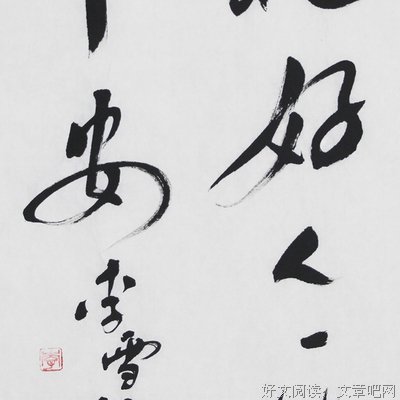 好人一
安
李雪
好文阅读，文章吧网